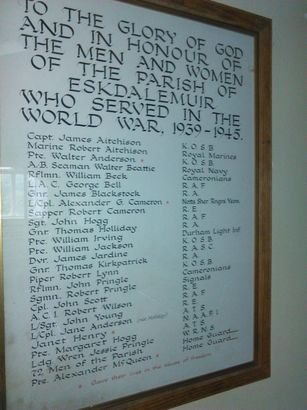 TO THE GLORY OF GOD
AND IN HONOUR OF
THE MEN AND WOMEN
OF THE PARISH OF
ESKDALEMUIR
WHO SERVED IN THE
WORLD WAR, 1939-1945.
Capt. James Aitchison K.O.S.B.
Marine Robert Aitchison Royal Marines
Pte. Walter Anderson * K.O.S.B.
A.B. Seaman Walter Beattie Royal Navy
Rflmn. William Beck Cameronians
L.A.C. George Bell R.A.F.
Gnr. James Blackstock R.A.
L/Cpl. Alexander G. Cameron * Notts Sher. Rngrs. Yeom.
Sapper Robert Cameron R.E.
Sgt. John Hogg R.A.
Gnr. Thomas Holliday R.A.
Pte. William Irving Durham Light Inf.
Pte. William Jackson K.O.S.B.
Dvr. James Jardine R.A.S.C.
Gnr. Thomas Kirkpatrick R.A.
Piper Robert Lynn K.O.S.B.
Rflmn. John Pringle Cameronians
Sgmn. Robert Pringle Signals
Cpl. John Scott R.E.
A.C.1. Robert Wilson R.A.F.
L/Sgt. John Young R.E.
L/Cpl. Jane Anderson (née Holliday) A.T.S.
Janet Henry * N.A.A.F.I.
Pte. Margaret Hogg A.T.S.
Ldg. Wren Jessie Pringle W.R.N.S.
72 Men of the Parish Home Guard
Pte. Alexander McQueen * Home Guard
* Gave their lives in the cause of freedom